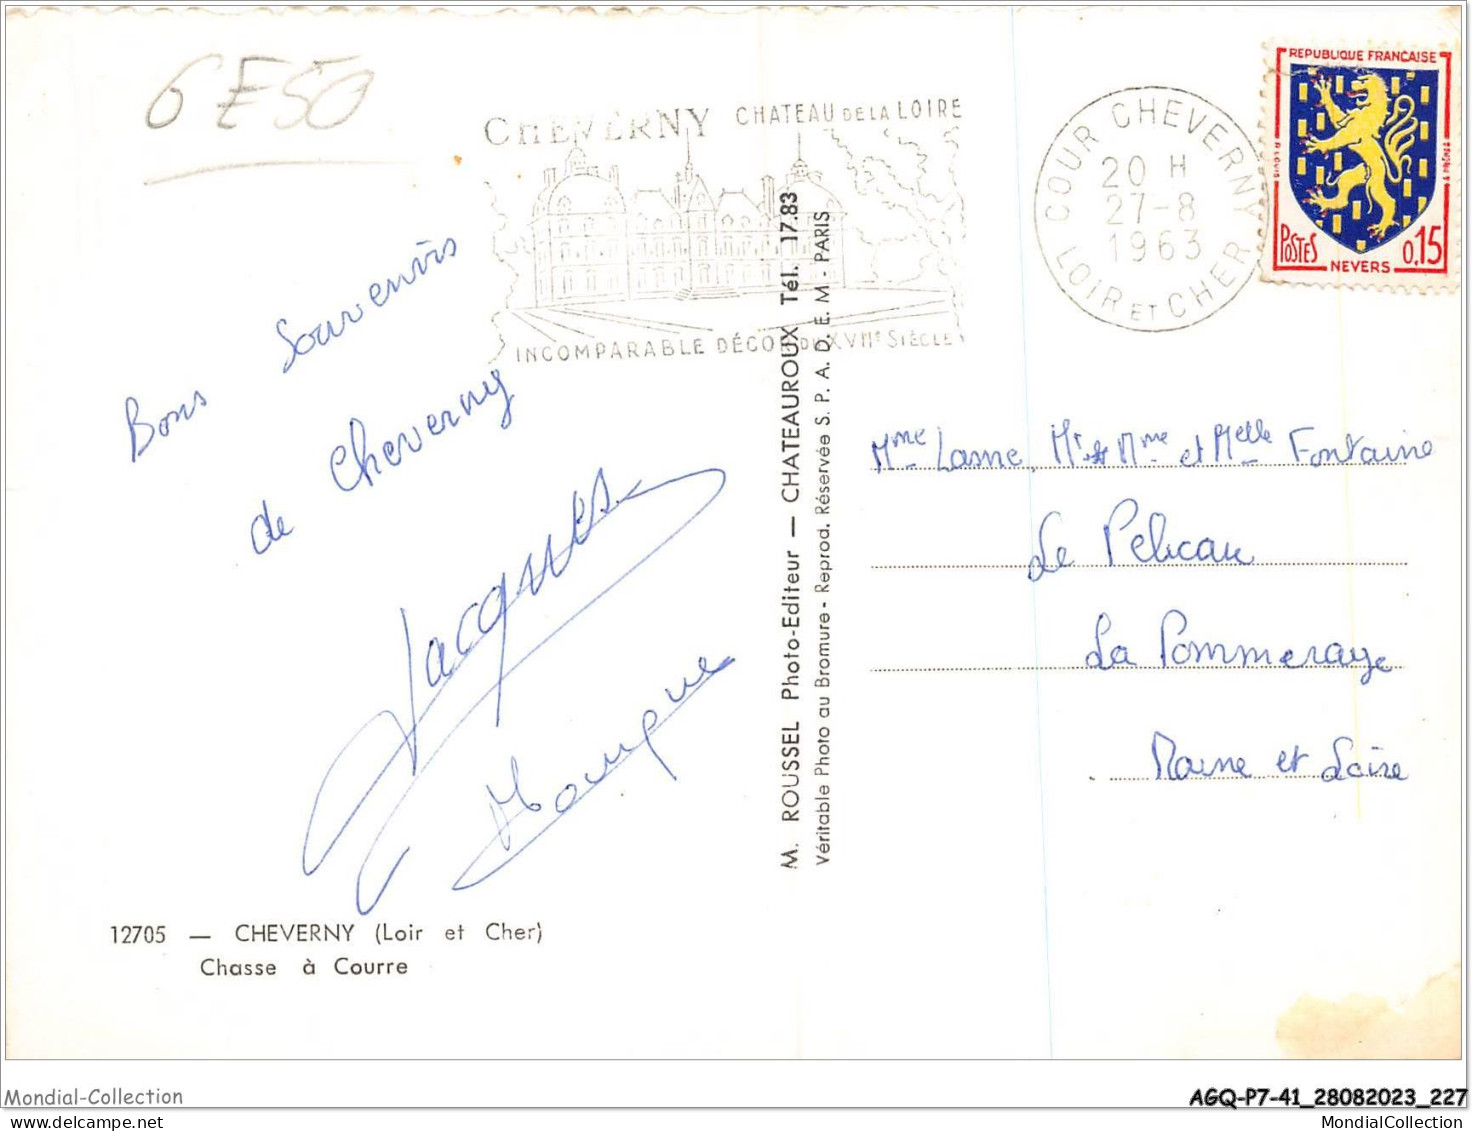 6E50
CHEVERNY CHATEAU DE LA LOIRE
INCOMPARABLE DÉCOR DU XVIIe SIÈCLE
COUR CHEVERNY
20 H
27-8
1963
LOIR ET CHER
REPUBLIQUE FRANCAISE
POSTES 0,15
NEVERS
Bons Souvenirs
de Cheverny
Jacques
Monique
M. ROUSSEL Photo-Editeur — CHATEAUROUX Tél. 17.83
Véritable Photo au Bromure - Reprod. Réservée S. P. A. D. E. M - PARIS
Mme Lasne, Mr et Mme et Melle Fontaine
Le Pelican
La Pommeraye
Maine et Loire
12705 — CHEVERNY (Loir et Cher)
Chasse à Courre
Mondial-Collection
AGQ-P7-41_28082023_227
MondialCollection